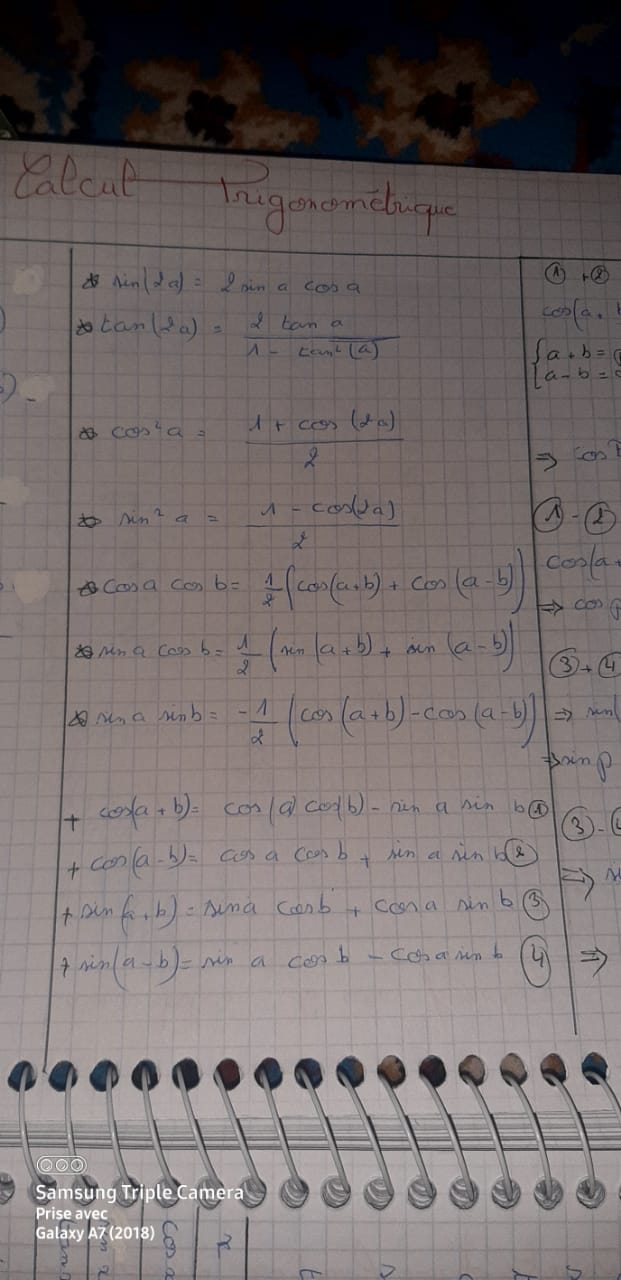 Calcul Trigonométrique
sin(2a) = 2 sin a cos a
tan(2a) = 2 tan a / 1 - tan²(a)
cos²a = 1 + cos(2a) / 2
sin² a = 1 - cos(2a) / 2
cos a cos b = 1/2 (cos(a+b) + cos(a-b))
sin a cos b = 1/2 (sin(a+b) + sin(a-b))
sin a sin b = -1/2 (cos(a+b) - cos(a-b))
+ cos(a+b) = cos(a) cos(b) - sin a sin b ①
+ cos(a-b) = cos a cos b + sin a sin b ②
+ sin(a+b) = sin a cos b + cos a sin b ③
+ sin(a-b) = sin a cos b - cos a sin b ④
① + ②
cos(a +
{ a + b =
a - b =
⇒ cos
① - ②
cos(a +
⇒ cos p
③ + ④
⇒ sin(
⇒ sin p
③ -
⇒
⇒
Samsung Triple Camera
Prise avec
Galaxy A7 (2018)
cos x
x